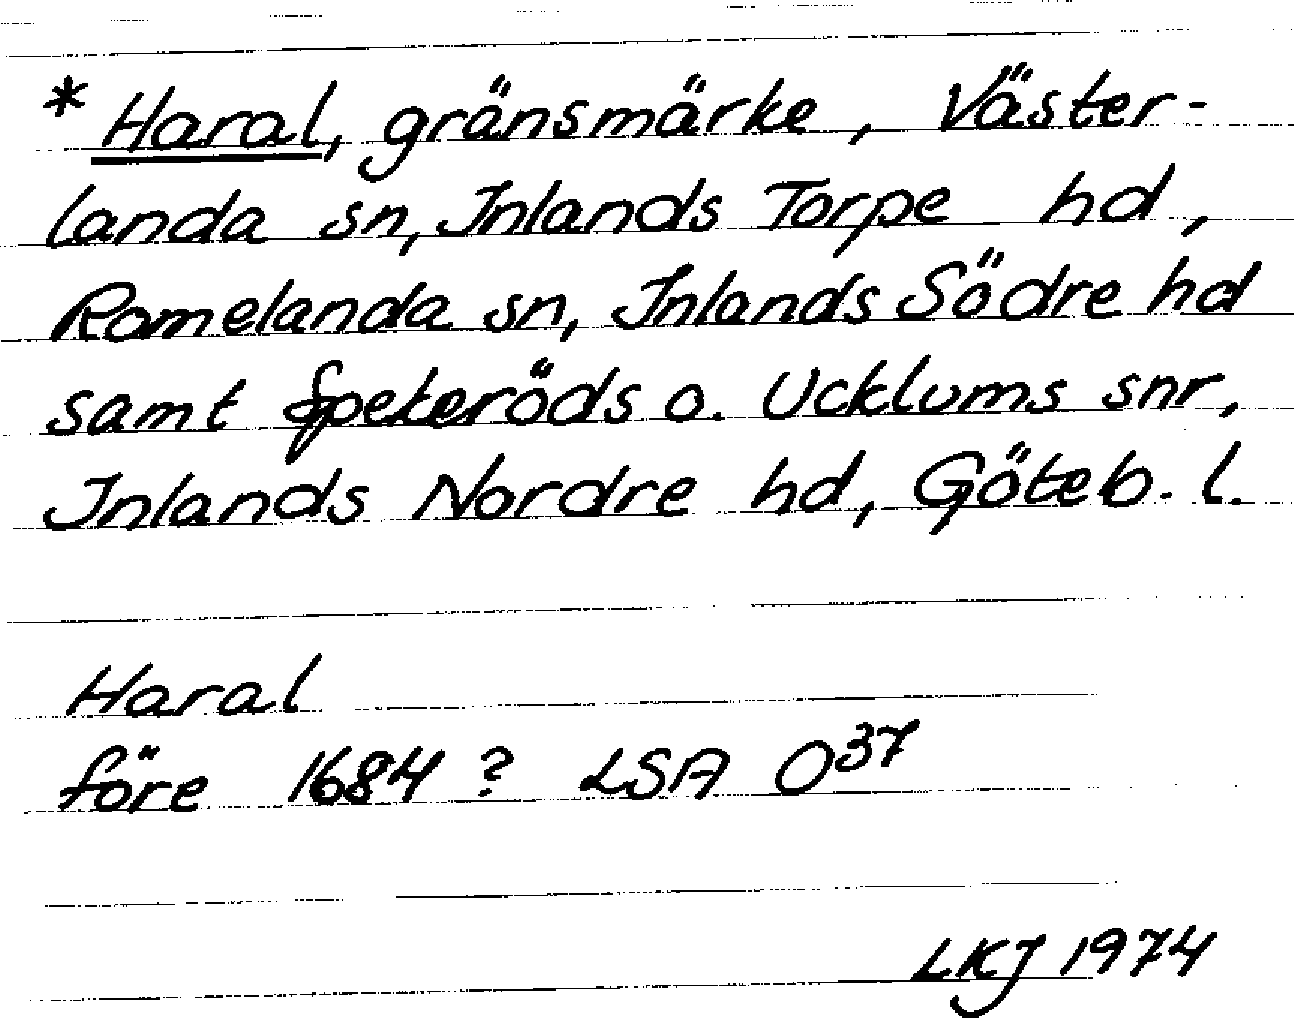 * Haral, gränsmärke, Väster-
landa sn, Inlands Torpe hd,
Romelanda sn, Inlands Södre hd
samt Spekeröds o. Ucklums snr,
Inlands Nordre hd, Göteb. l.
Haral
före 1684 ? LSA O37
LKJ 1974